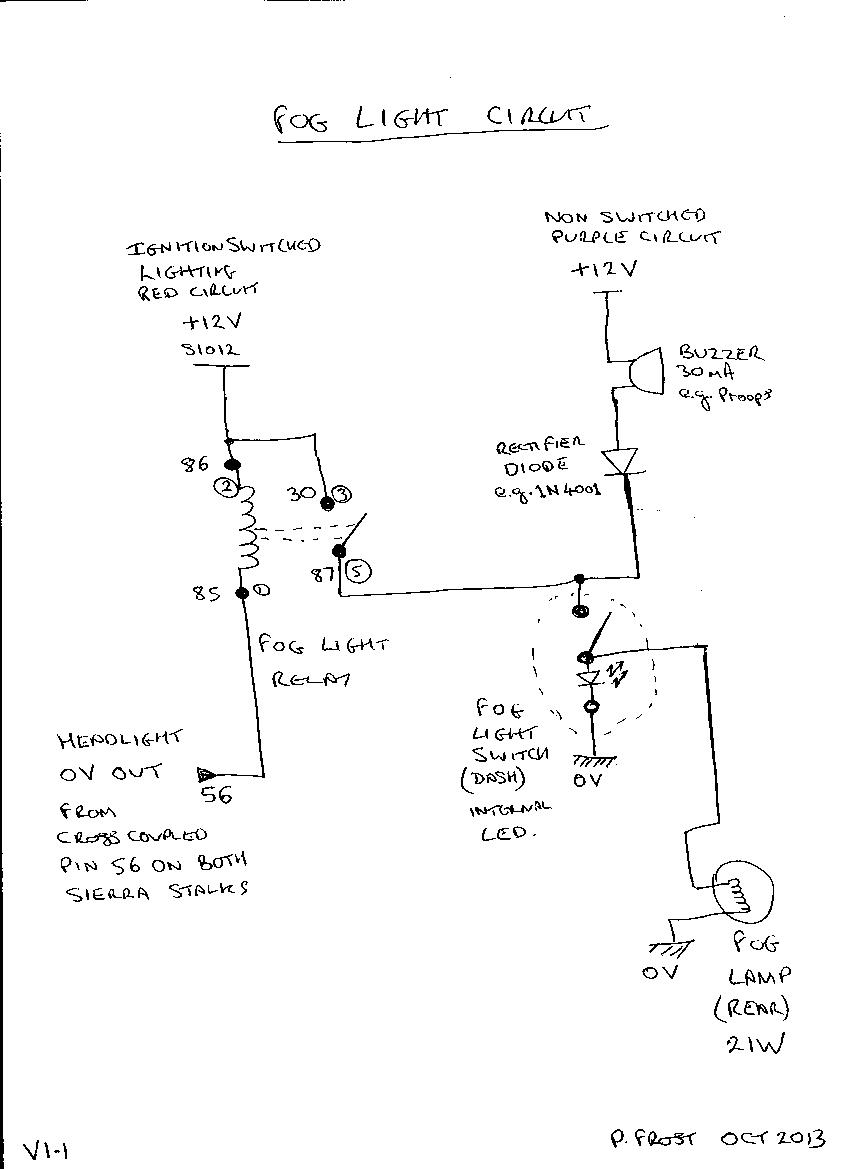 FOG LIGHT CIRCUIT
NON SWITCHED
PURPLE CIRCUIT
+12V
IGNITION SWITCHED
LIGHTING
RED CIRCUIT
+12V
S1012
BUZZER
30MA
e.g. Proops
RECTIFIER
DIODE
e.g. 1N4001
86
2
30 3
87 5
85 1
FOG LIGHT
RELAY
HEADLIGHT
0V OUT
56
FROM
CROSS COUPLED
PIN 56 ON BOTH
SIERRA STALKS
FOG
LIGHT
SWITCH
(DASH)
INTERNAL
LED.
0V
0V
FOG
LAMP
(REAR)
21W
V1-1
P. FROST OCT 2013